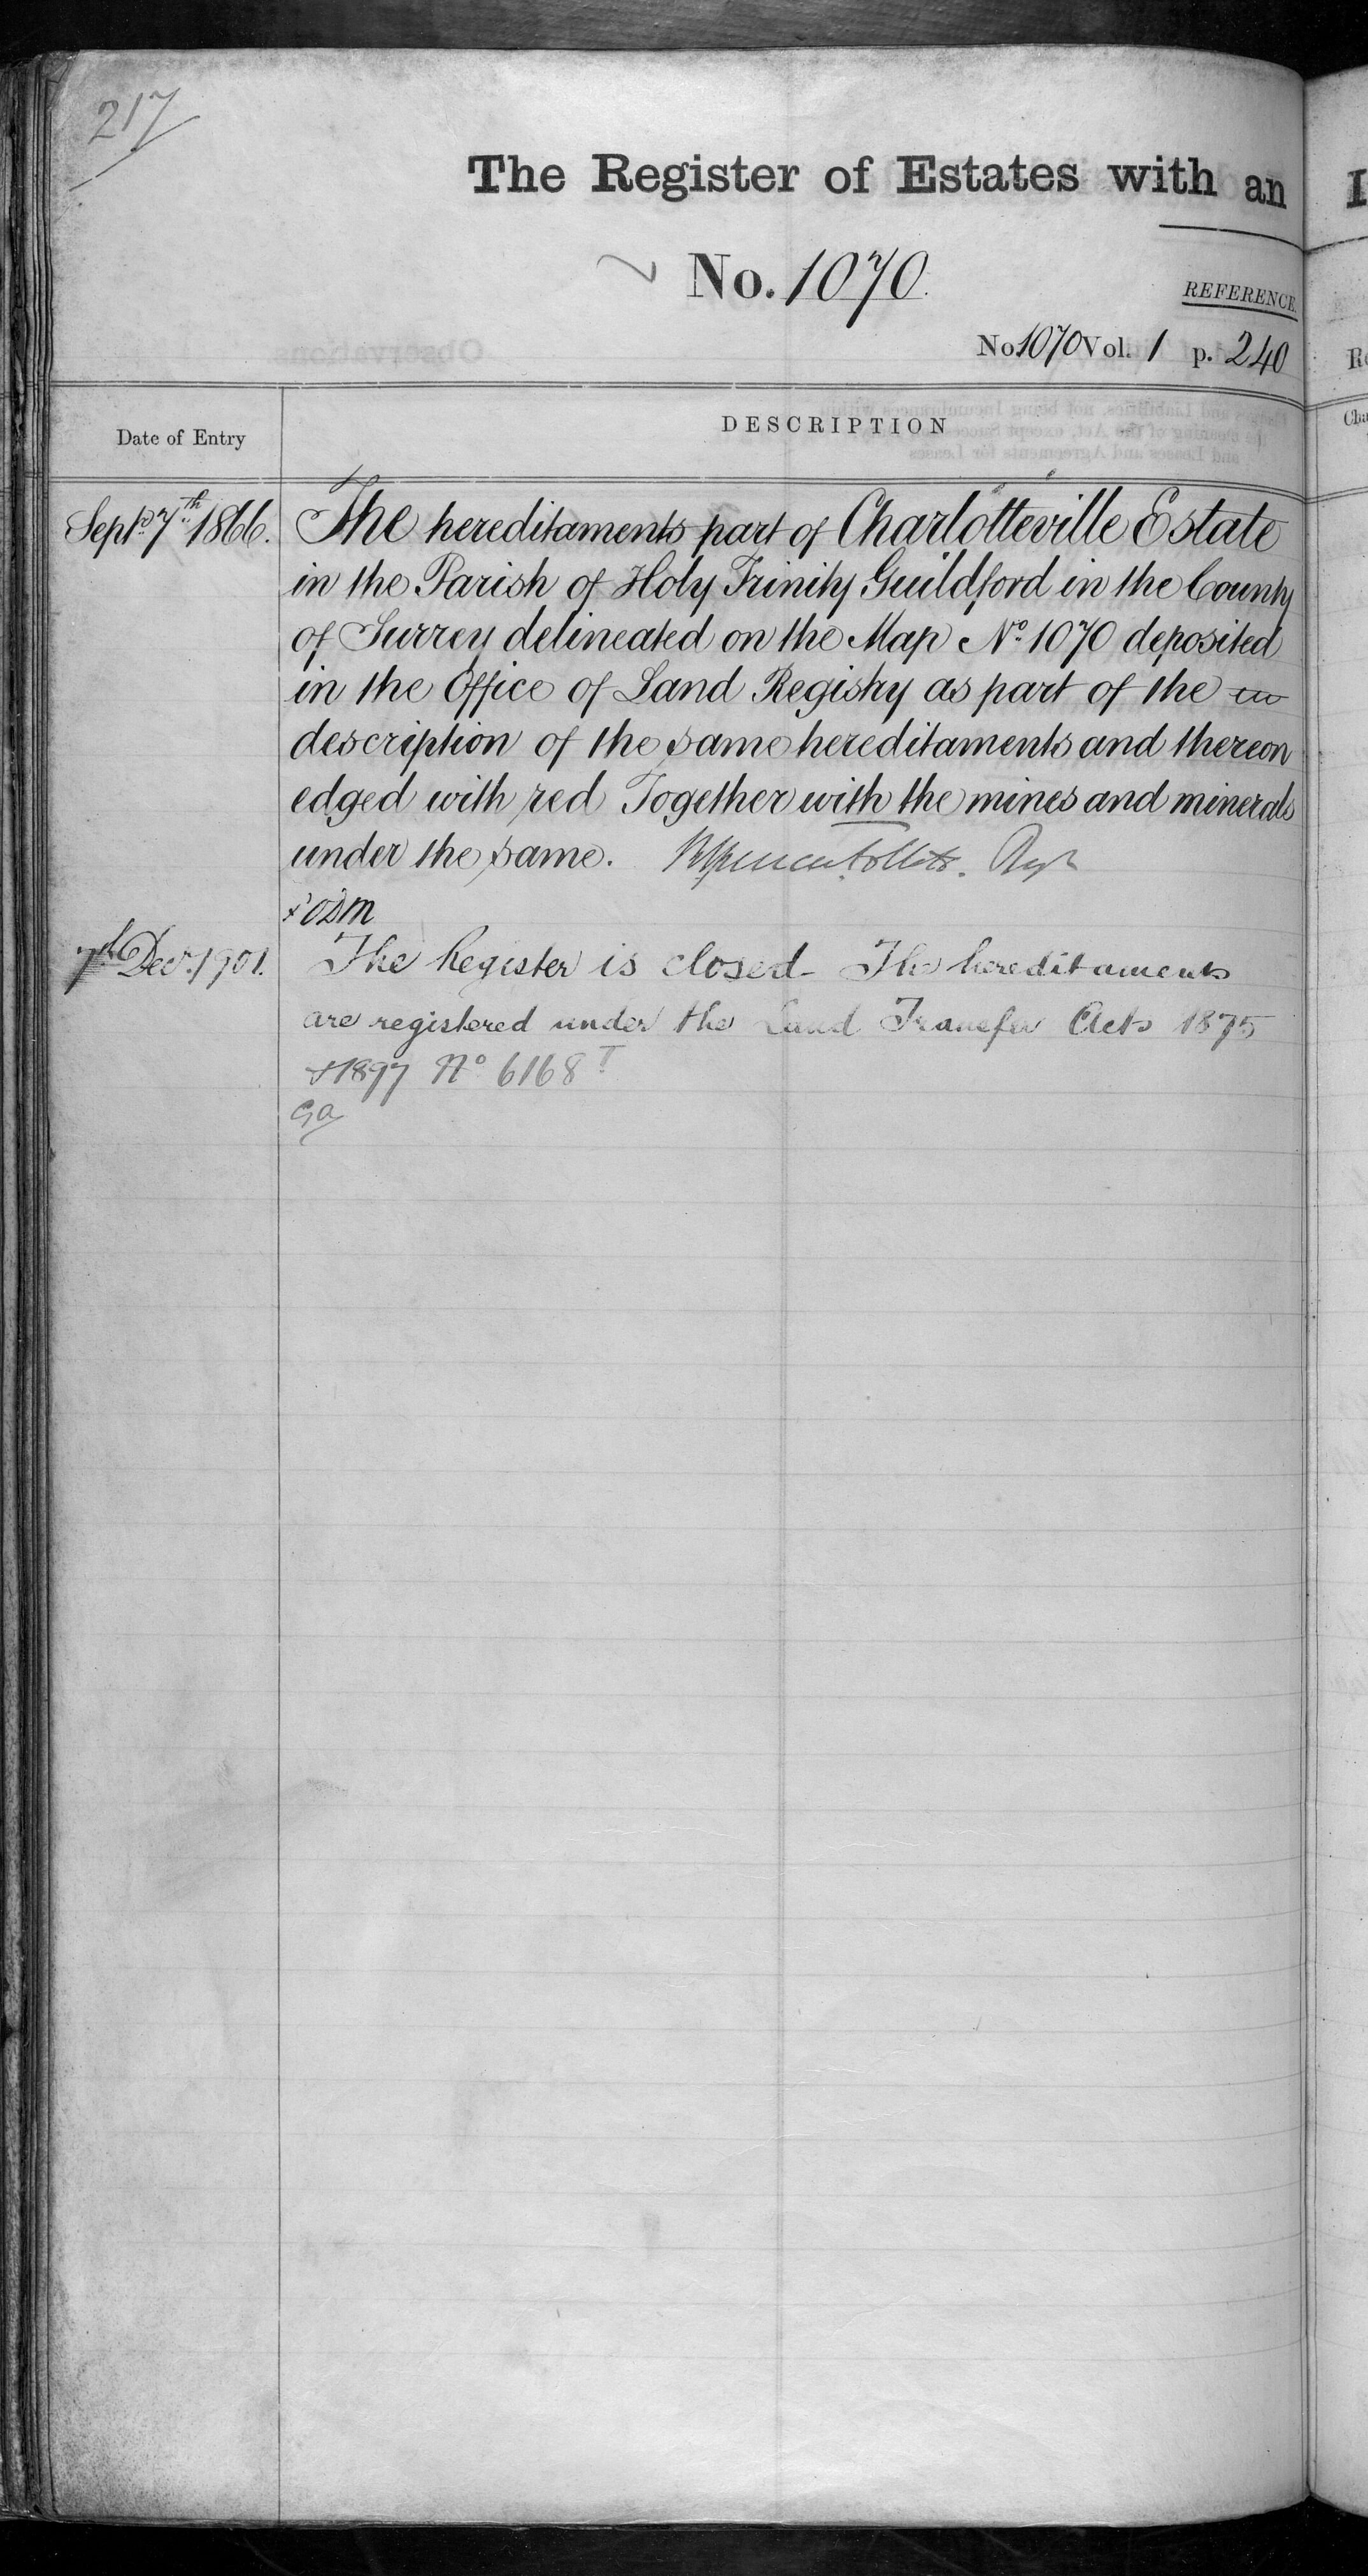 217
The Register of Estates with an
No. 1070.
REFERENCE.
No 1070 Vol. 1 p. 240
Date of Entry
DESCRIPTION
Sept. 7th 1866.
The hereditaments part of Charlotteville Estate
in the Parish of Holy Trinity Guildford in the County
of Surrey delineated on the Map No. 1070 deposited
in the Office of Land Registry as part of the
description of the same hereditaments and thereon
edged with red Together with the mines and minerals
under the same.
7th Decr. 1901.
The Register is closed - The hereditaments
are registered under the Land Transfer Acts 1875
& 1897 No 6168 T